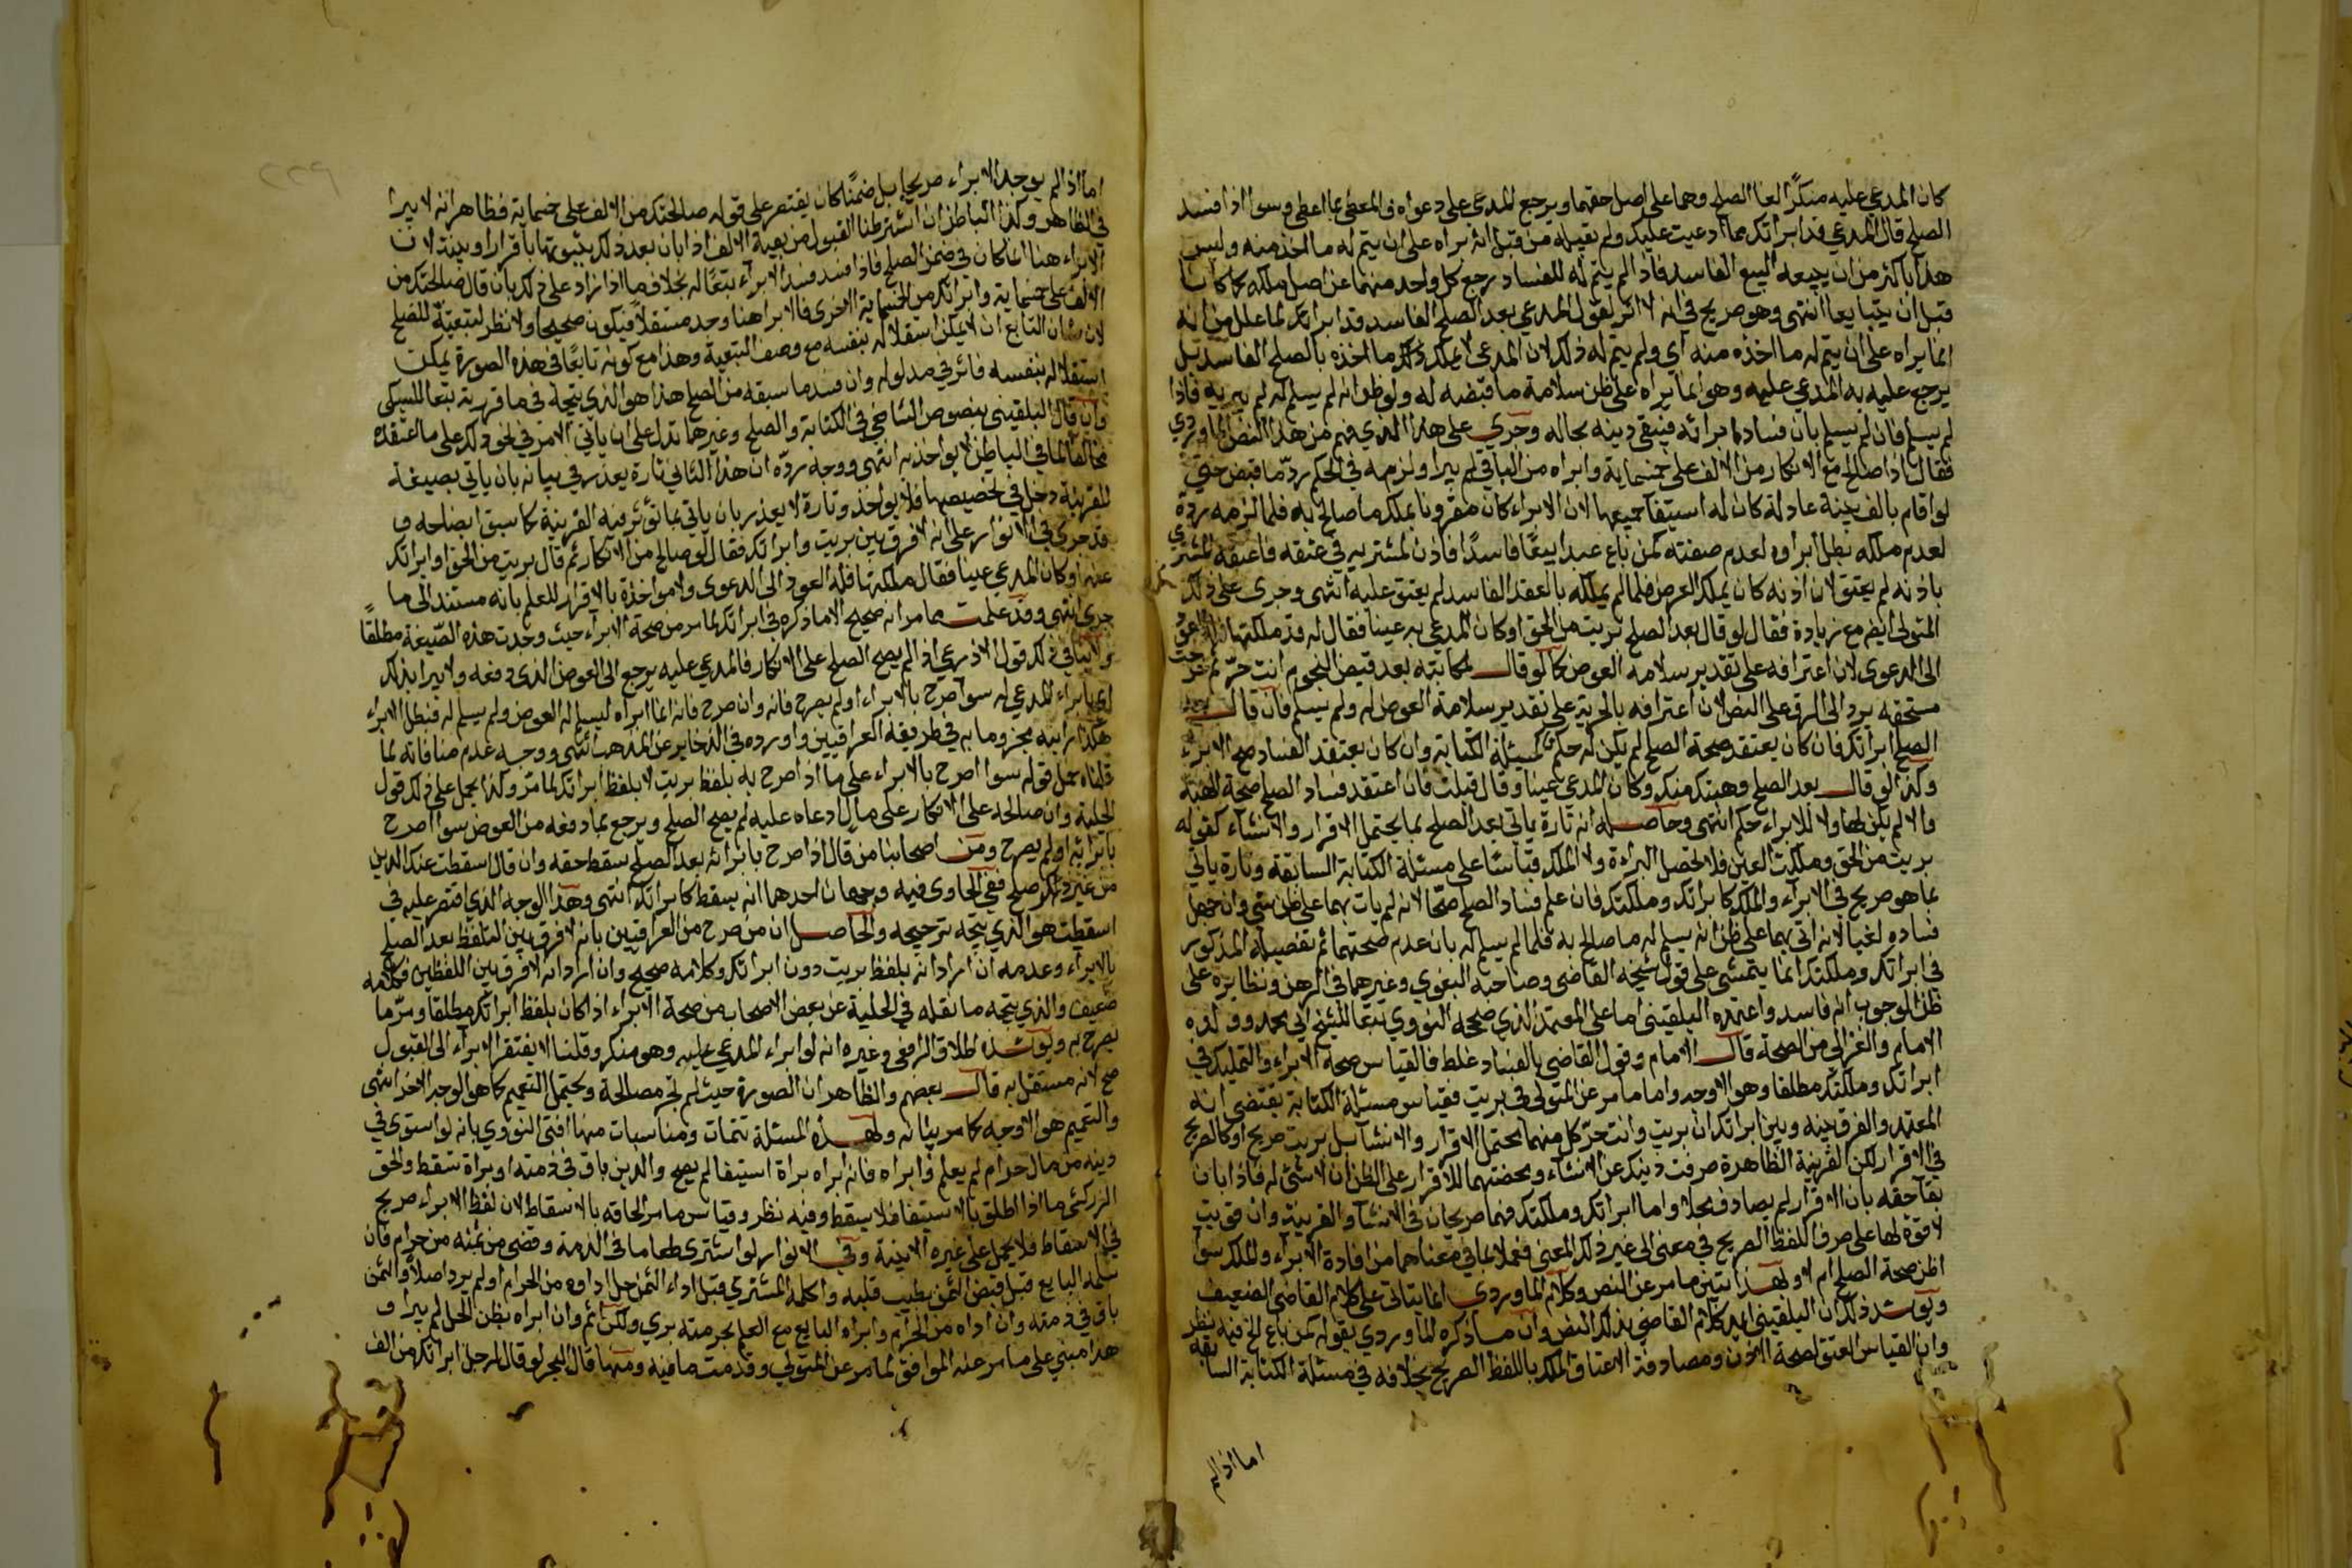 كان المدعي عليه منكرًا لغا الصلح وهما على اصل حقهما ويرجع المدعي على دعواه والمعطي بما اعطى وسوا اذا فسد
الصلح قال المدعي قد ابراتك مما ادعيت عليك ولم تقبله من قبل انه ابراه على ان يتم له ما اخذ منه وليس
هذا باكثر من ان يبيعه البيع الفاسد فاذا لم يتم له الفساد رجع كل واحد منهما على اصل ملكه كما كانا
قبل ان يتبايعا انتهى وهو صريح في انه لا اثر لقول المدعي بعد الصلح الفاسد قد ابراتك لما علل من انه
انما يراه على ان يتم له ما اخذه منه اي ولم يتم له ذلك لان المدعي لا يملك ذلك ما اخذه بالصلح الفاسد بل
يرجع عليه به المدعي عليه وهو انما يراه على ظن سلامة ما قبضه له ولو ظن انه لم يسلم له لم يبريه فاذا
لم يسلم بان فساد ابرائه فيبقى دينه بحاله وجرى على هذا الذي فهم من هذا النص الماوردي
فقال اذا صالح مع الانكار من الالف على خمسماية وابراه من الباقي لم يبرا ولزمه في الحكم رد ما قبض حتى
لو اقام بالف بينة عادلة كان له استيفا جميعها لان الابراء كان مقرونا بملك ما صالح به فلما لزمه رده
لعدم ملكه بطل ابراوه لعدم صفته كمن باع عبدا بيعًا فاسدًا فاذن لمشتريه في عتقه فاعتقه المشتري
باذنه لم يعتق لان اذنه كان يملك العوض فلما لم يملكه بالعقد الفاسد لم يعتق عليه انتهى وجرى على ذلك
المتولي ايضا مع زيادة فقال لو قال بعد الصلح بريت من الحق او كان المدعي به عينا فقال له قد ملكتها فله العود
الى الدعوى لان اعترافه على تقدير سلامة العوض كما لو قال لمكاتبه بعد قبض النجوم انت حر ثم خرجت
مستحقه يرد الى الرق على النص لان اعترافه بالحرية على تقدير سلامة العوض له ولم يسلم فان قال بعد
الصلح ابراتك فان كان يعتقد صحة الصلح لم يكن له حكم كمسئلة الكتابة وان كان يعتقد الفساد صح الابراء
وكذا لو قال بعد الصلح وهبتك منك وكان المدعي عينا وقال قبلت فان اعتقد فساد الصلح صحت الهبة
والا لم يكن لها ولا للابراء حكم انتهى وحاصله انه تارة ياتي بعد الصلح بما يحتمل الاقرار والانشاء كقوله
بريت من الحق وملكت العين فلا تحصل البراءة ولا الملك قياسا على مسئلة الكتابة السابقة وتارة ياتي
بما هو صريح في الابراء والملك كابراتك وملكتك فان علم فساد الصلح صحا لانه لم يات بهما على ظن شي وان جهل
فساده لغيا لانه اتى بهما على ظن انه يسلم له ما صالح به فلما لم يسلم له بان عدم صحتهما ثم تفصيله المذكور
في ابراتك وملكتك انما يتمشى على قول شيخه القاضي وصاحبه البغوي وغيرهما في الرهن ونظايره على
ظن الوجوب انه فاسد واعتمده البلقيني اما على المعتمد الذي صححه النووي تبعا للشيخ ابي محمد وولده
الامام والغزالي من الصحة قال الامام وقول القاضي بالفساد غلط فالقياس صحة الابراء والتمليك في
ابراتك وملكتك مطلقا وهو الاوجه واما ما مر عن المتولي في بريت فقياس مسئلة الكتابة يقتضي انه
المعتمد والفرق بينه وبين ابراتك ان بريت وانت حر كل منهما يحتمل الاقرار والانشا بل بريت صريح او كالصريح
في الاقرار لكن القرينة الظاهرة صرفت دينك عن الانشاء ومحضتهما للاقرار على الظن ان لا شي له فاذا بان
بقا حقه بان الاقرار لم يصادف محلا واما ابراتك وملكتك فهما صريحان في الانشا والقرينة وان قويت
لا قوة لها على صرف اللفظ الصريح في معنى الى غير ذلك المعنى فعملا بما في معناهما من افادة الابراء والملك سوا
اظن صحة الصلح ام لا وبهذا يتبين ما مر عن النص وكلام الماوردي انما يتاتى على كلام القاضي الضعيف
ويوشد ذلك ان البلقيني ايد كلام القاضي بذلك النص وان ما ذكره الماوردي بقوله كمن باع الخ فيه نظر
وان القياس العتق لصحة الاذن ومصادفة الاعتاق الملك باللفظ الصريح بخلافه في مسئلة الكتابة السابقة
اما اذا لم
اما اذا لم يوجد الابراء صريحا بل ضمنًا كان يقتصر على قوله صالحتك من الالف على خمسماية فظاهر انه لا يبرا
في الظاهر وكذا الباطن ان اشترطنا القبول من بقية الالف اذا بان بعد ذلك ثبوتها باقرار او بينة لان
الابراء هنا انما كان في ضمن الصلح فاذا فسد فسد الابراء تبعًا له بخلاف ما اذا زاد على ذلك بان قال صالحتك من
الالف على خمسماية وابراتك من الخمسماية الاخرى فالابرا هنا وجد مستقلاً فيكون صحيحا ولا نظر لتبعيته للصلح
لان شان التابع ان لا يمكن استقلاله بنفسه مع وصف التبعية وهذا مع كونه تابعًا في هذه الصورة يمكن
استقلاله بنفسه فاثر في مدلوله وان فسد ما سبقه من الصلح هذا هو الذي يتجه في ما قررته تبعا للسبكي
وان قال البلقيني بنصوص الشافعي في الكتابة والصلح وغيرها تدل على ان ياتي الامر في نحو ذلك على ما اعتقده
مخالفا لما في الباطن لا يواخذ به انتهى ووجه رده ان هذا الثاني تارة يعذر في بيانه بان ياتي بصيغة
للقرينة دخل في تخصيصها فلا يواخذ وتارة لا يعذر بان ياتي بما لا توثر فيه القرينة كما سبق ايضاحه و
قد جرى في الانوار على انه لا فرق بين بريت وابراتك فقال لو صالح من الانكار ثم قال بريت من الحق او ابراتك
عنه او كان المدعي عينا فقال ملكتها فله العود الى الدعوى ولا مواخذة بالاقرار للعلم بانه مستند الى ما
جرى انتهى وقد علمت مما مر انه صحيح الا ما ذكره في ابراتك لما مر من صحة الابراء حيث وجدت هذه الصيغة مطلقًا
ولا ينافي ذلك قول الاذرعي اذا لم يصح الصلح على الانكار فالمدعي عليه يرجع الى العوض الذي دفعه ولا يبرا بذلك
اي بابراء المدعي له سوا صرح بالابراء او لم يصرح فانه وان صرح فانه انما ابراه ليسلم له العوض ولم يسلم له فبطل الابراء
هكذا رايته مجزوما به في طريقة العراقيين واورده في الذخاير عن المذهب انتهى ووجه عدم منافاته لما
قلناه حمل قوله سوا اصرح بالابراء على ما اذا صرح به بلفظ بريت لا بلفظ ابراتك لما مر وكذا يحمل على ذلك قول
الحلية وان صالحه على الانكار على مال ادعاه عليه لم يصح الصلح ويرجع بما دفعه من العوض سوا اصرح
بابرائه او لم يصرح ومن اصحابنا من قال اذا صرح بابرائه بعد الصلح سقط حقه وان قال اسقطت عنك الدين
من غير ذكر صلح ففي الحاوى فيه وجهان احدهما انه يسقط كابراتك انتهى وهذا الوجه الذي اقتصر عليه في
اسقطت هو الذي يتجه ترجيحه والحاصل ان من صرح من العراقيين بانه لا فرق بين التلفظ بعد الصلح
بالابراء وعدمه ان ارادانه بلفظ بريت دون ابراتك وكلامه صحيح وان ارادانه لا فرق بين اللفظين فكلامه
ضعيف والذي يتجه ما نقله في الحلية عن بعض الاصحاب من صحة الابراء اذا كان بلفظ ابراتك مطلقا ومر ما
يصرح به ويوشده اطلاق الرافعي وغيره انه لو ابراء المدعي عليه وهو منكر وقلنا لا يفتقر الابراء الى القبول
صح لانه مستقل به قال بعضهم والظاهر ان الصورة حيث لم تجر مصالحة ويحتمل التعميم كما هو الوجه الاخر انتهى
والتعميم هو الاوجه كما مر بيانه ولهذه المسئلة تتمات ومناسبات منها افتى النووي بانه لو استوى في
دينه من مال حرام لم يعلم وابراه فان ابراه براة استيفا لم يصح والدين باق في ذمته او براة سقط والحق
الزركشي ما اذا اطلق بالاستيفا فلا يسقط وفيه نظر وقياس ما مر الحاقه بالاسقاط لان لفظ الابراء صريح
في الاسقاط فلا يحمل على غيره الا بنية وفي الانوار لو اشترى طعاما في الذمة وقضى من ثمنه من حرام فان
سلمه البايع قبل قبض الثمن بطيب قلبه واكله المشتري قبل اداء الثمن حل اداوه من الحرام او لم يرد اصلا والثمن
باق في ذمته وان اداه من الحرام وابراه البايع مع العلم بحرمته بري ولكن اثم وان ابراه بظن الحل لم يبرا و
هذا مبني على ما مر عنه الموافق لما مر عن المتولي وقدمت ما فيه ومنها قال في البحر لو قال لرجل ابراتك من الف